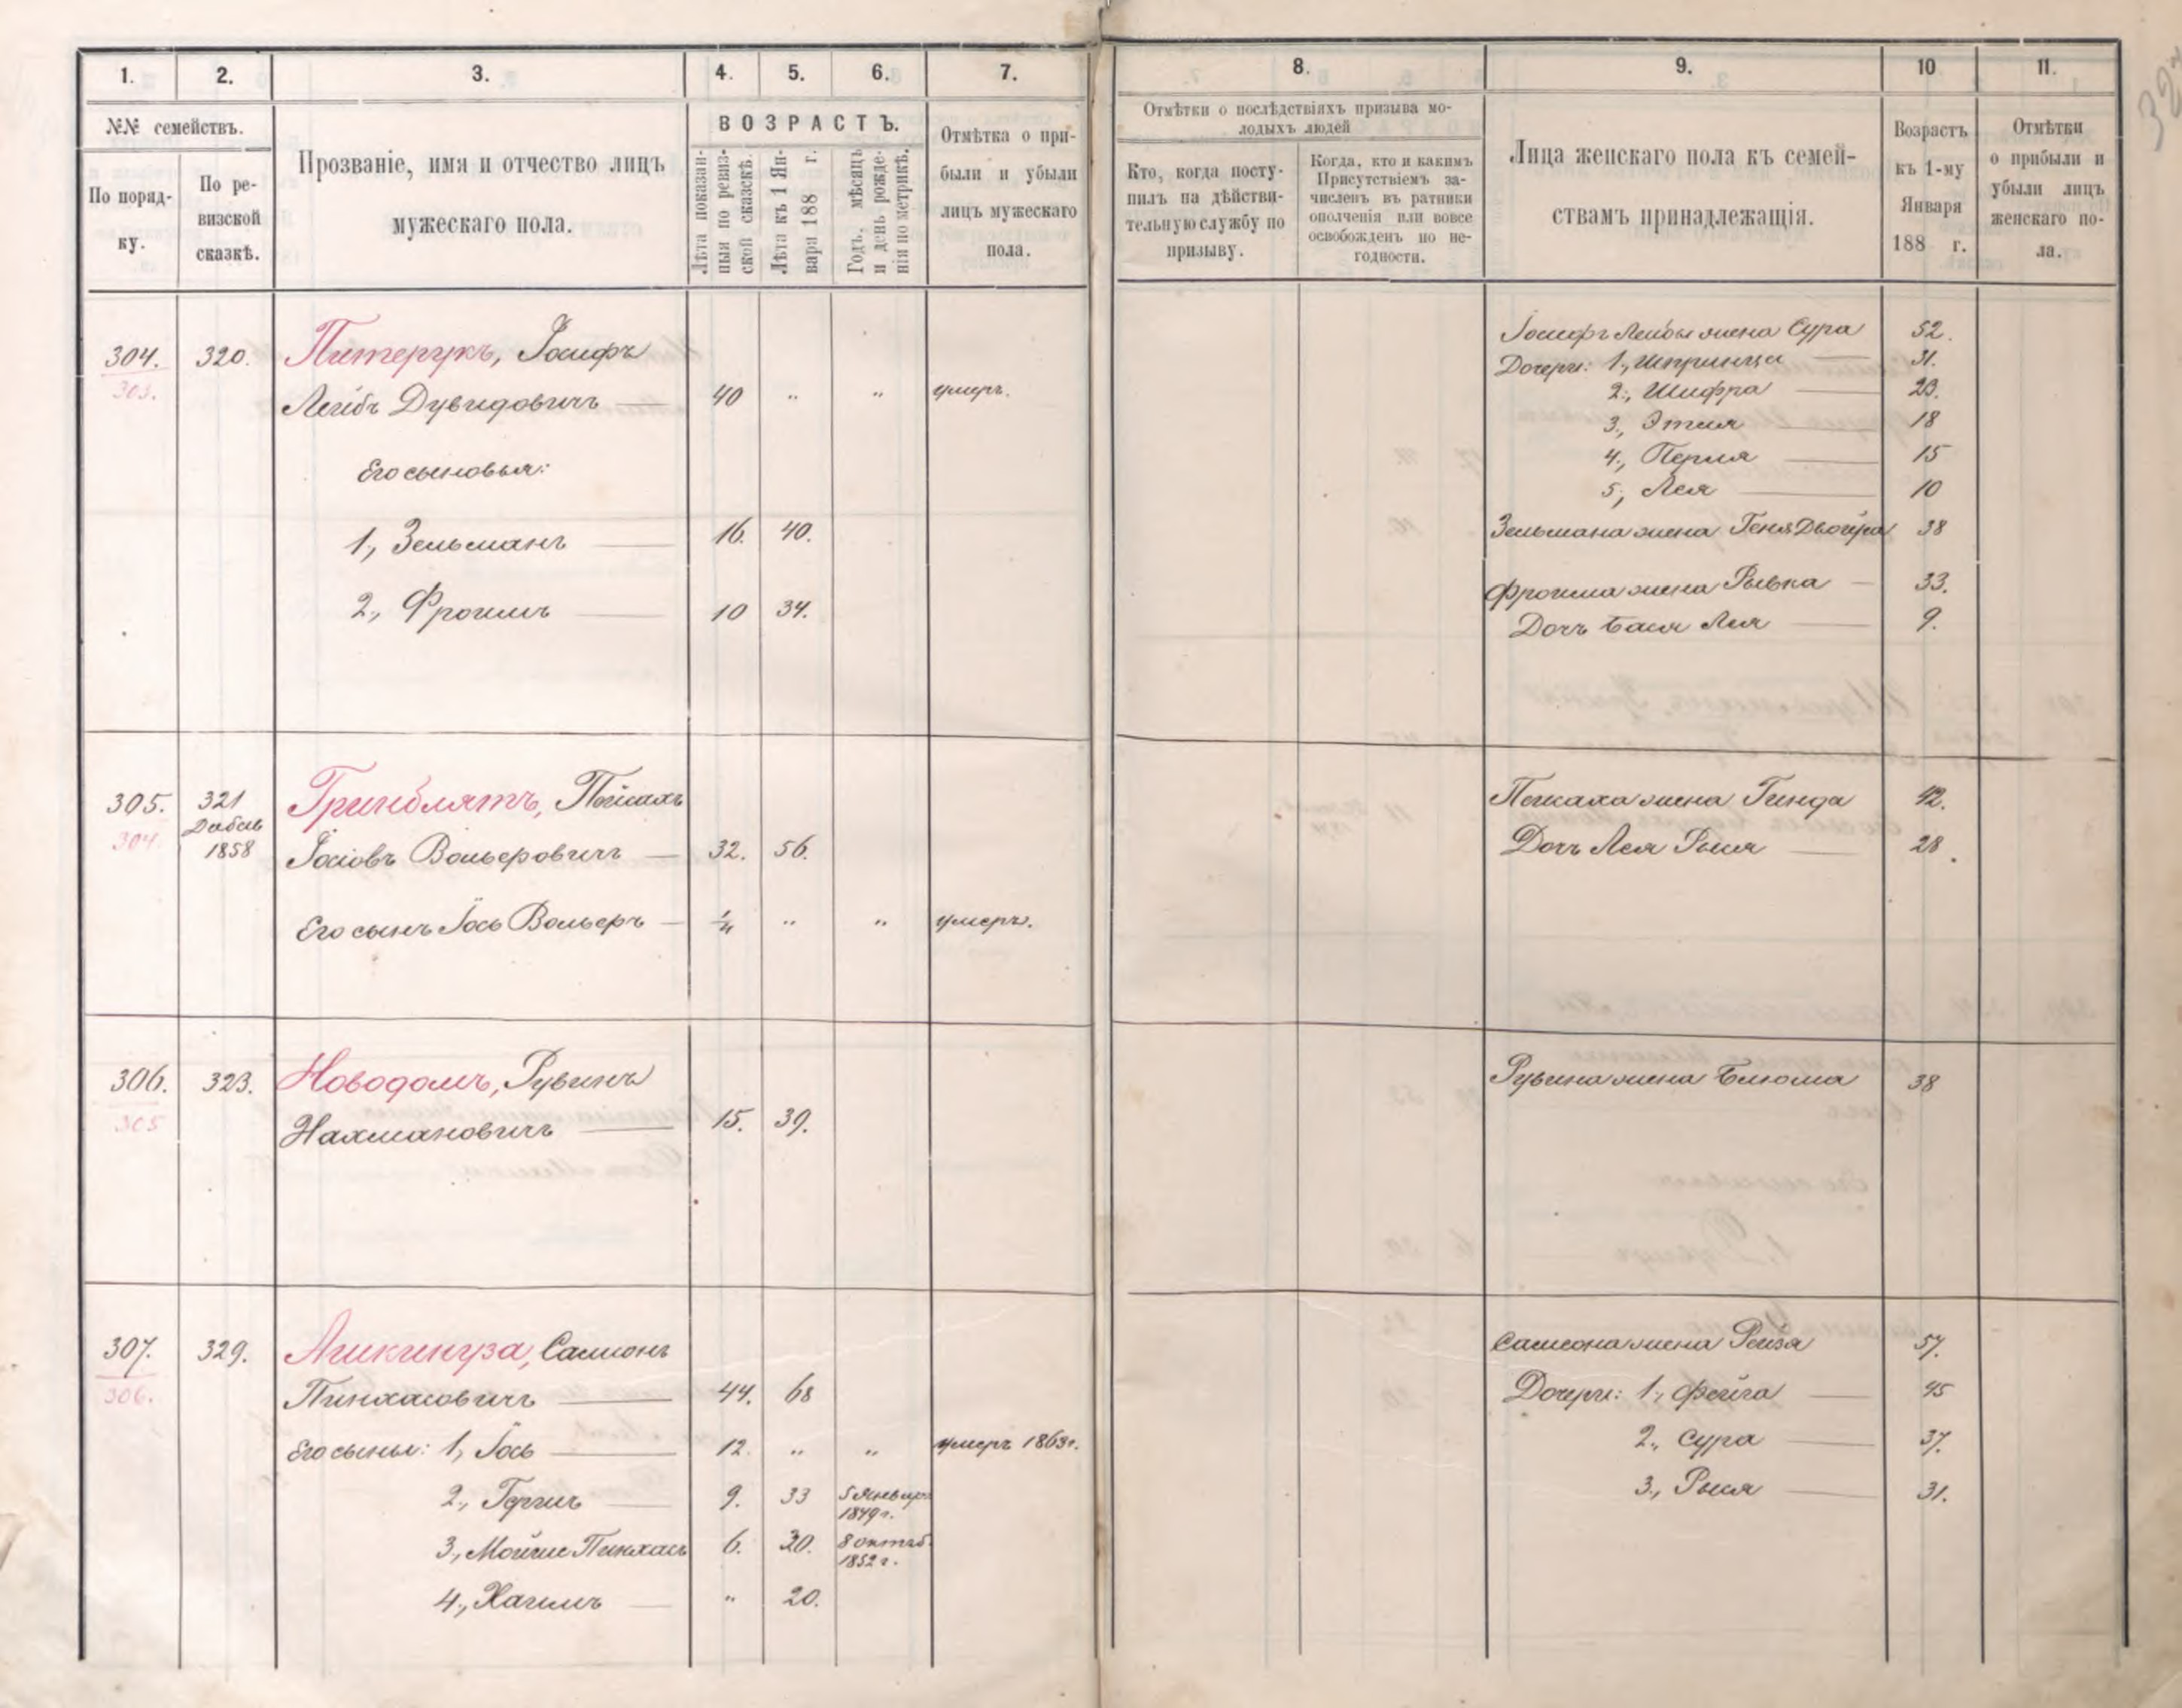 1. 2. 3. 4. 5. 6. 7. 8. 9. 10 11.
№№ семействъ.
По поряд-
ку.
По ре-
визской
сказкѣ.
Прозваніе, имя и отчество лицъ
мужескаго пола.
ВОЗРАСТЪ.
Лѣта показан-
ныя по ревиз-
ской сказкѣ.
Лѣта къ 1 Ян-
варя 188 г.
Годъ, мѣсяцъ
и день рожде-
нія по метрикѣ.
Отмѣтка о при-
были и убыли
лицъ мужескаго
пола.
Отмѣтки о послѣдствіяхъ призыва мо-
лодыхъ людей
Кто, когда посту-
пилъ на дѣйстви-
тельную службу по
призыву.
Когда, кто и какимъ
Присутствіемъ за-
численъ въ ратники
ополченія или вовсе
освобожденъ по не-
годности.
Лица женскаго пола къ семей-
ствамъ принадлежащія.
Возрастъ
къ 1-му
Января
188 г.
Отмѣтки
о прибыли и
убыли лицъ
женскаго по-
ла.
304. 320. Питерукъ, Іосифъ
303.
Лейбъ Дувидовичъ 40 " " умеръ.
Его сыновья:
1, Зельманъ 16. 40.
2, Фроимъ 10 34.
Іосифъ Лейбы жена Сура 52.
Дочери: 1, Шпринца 31.
2, Шифра 23.
3, Этля 18
4, Перля 15
5, Лея 10
Зельмана жена Геня Двойра 38
Фроима жена Рывка 33.
Дочь Бася Лея 9.
305. 321 Гринблятъ, Пейсахъ
304
1858 Іосіовъ Вольферовичъ 32. 56.
Его сынъ Іось Вольфъ 1/4 " " умеръ.
Пейсаха жена Гинда 42.
Дочь Лея Рыся 28.
306. 323. Новодомъ, Рувинъ
305
Нахмановичъ 15. 39.
Рувина жена Блюма 38
307. 329. Самсонъ
306.
Пинхасовичъ 44. 68
Его сыны: 1, Іось 12. " " умеръ 1863г.
2, Гершъ 9. 33 5 Января
1849 г.
3, Мойше Пинхасъ 6. 30. 8 октяб.
1852 г.
4, Хаимъ " 20.
Самсона жена Рейзя 57.
Дочери: 1, Фейга 45
2, Сура 37.
3, Рыся 31.